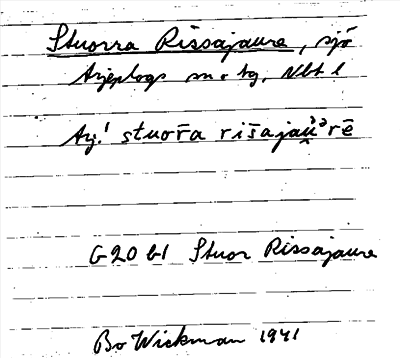 Stuorra Rissajaure, sjö
Arjeplogs sn o tg, Nbt l
Arj.! stuor̄a rišajau̯ᵊrē
G20 b1 Stuor Rissajaure
Bo Wickman 1941